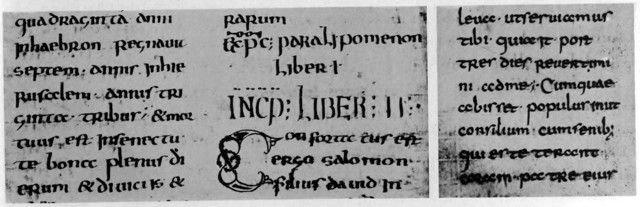 quadraginta anni
inhaebron regnauit
septem annis inhie
rusalem annis tri
ginta tribus &mor
tuus est insenectu
te bona plenus di
erum & diuiciis &
rarum
Expc: paralipomenon
Liber I
INCP: LIBER II
Confortatus est
ergo salomon
filius dauid in
leue utseruiamus
tibi qui ait post
tres dies reuertimi
ni adme Cumquae
abisset populus iniit
consilium cumsenib;
qui esteterant
coram patre eius